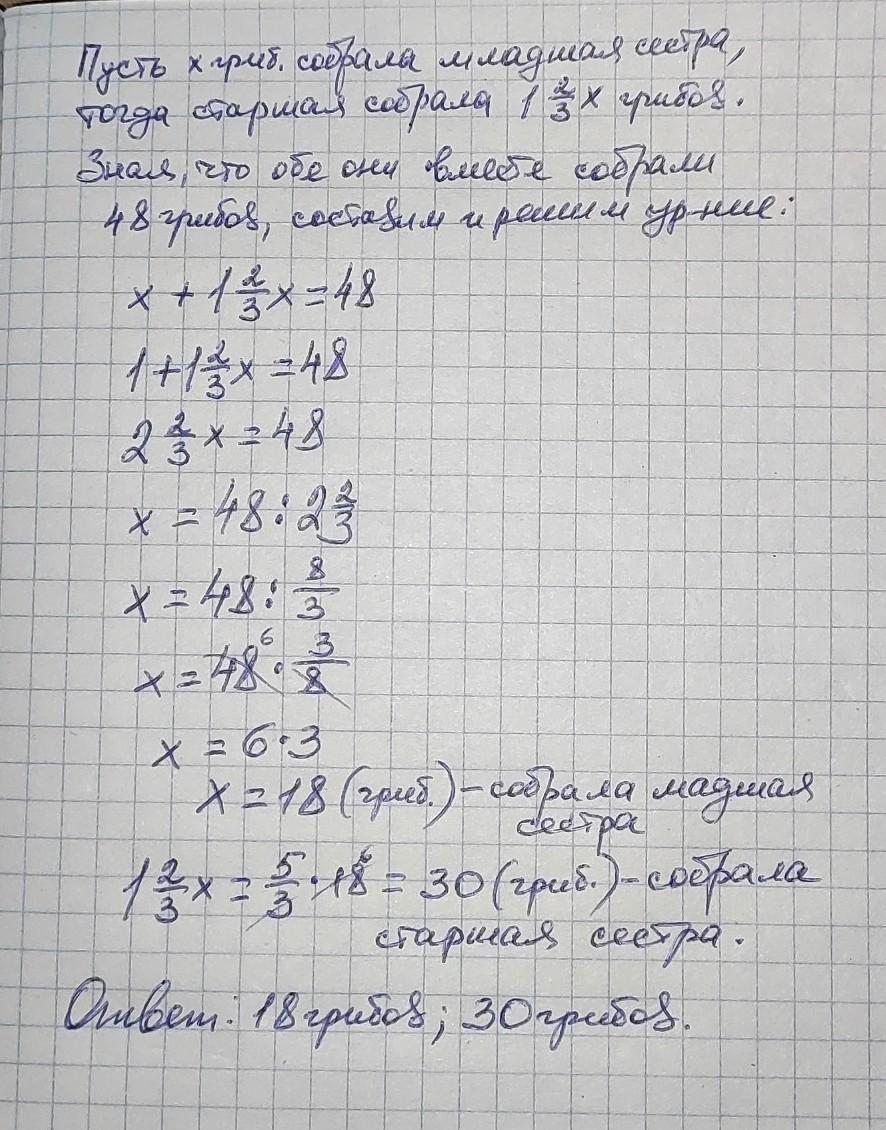 Пусть x гриб. собрала младшая сестра,
тогда старшая собрала 1 2/3 x грибов.
Зная, что обе они вместе собрали
48 грибов, составим и решим ур-ние:
x + 1 2/3 x = 48
1 + 1 2/3 x = 48
2 2/3 x = 48
x = 48 : 2 2/3
x = 48 : 8/3
x = 48 6 · 3/8
x = 6 · 3
x = 18 (гриб.) - собрала мадшая
сестра
1 2/3 x = 5/3 · 18 6 = 30 (гриб.) - собрала
старшая сестра.
Ответ: 18 грибов; 30 грибов.